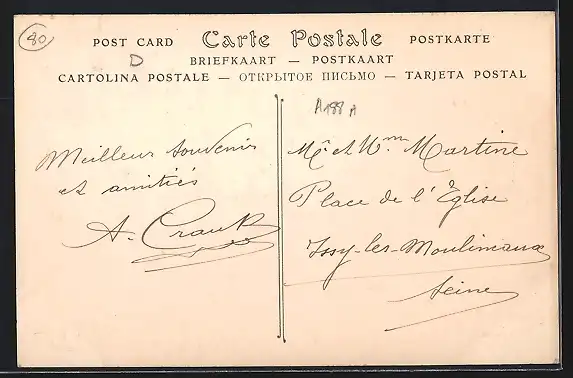 80
POST CARD Carte Postale POSTKARTE
D BRIEFKAART — POSTKAART
CARTOLINA POSTALE — ОТКРЫТОЕ ПИСЬМО — TARJETA POSTAL
A188A
Meilleur souvenirs
et amitiés
A. Crauk
Mr et Mme Martine
Place de l'Église
Issy-les-Moulineaux
Seine